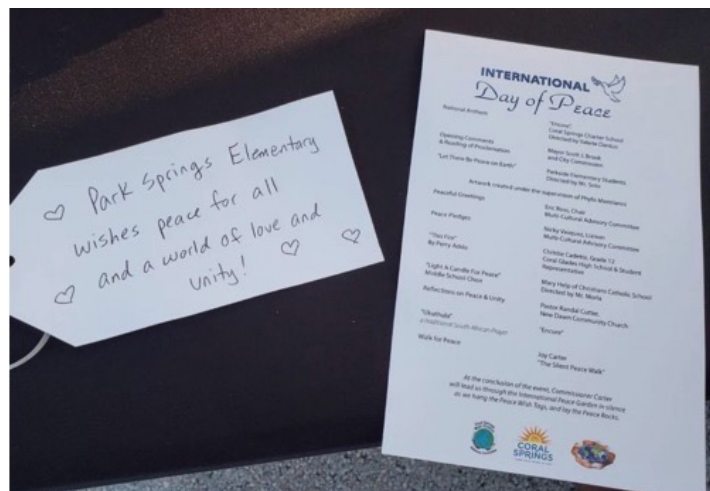 Park Springs Elementary
wishes peace for all
and a world of love and
unity!
INTERNATIONAL
Day of Peace
National Anthem
"Encore"
Coral Springs Charter School
Directed by
Opening Comments
& Reading of Proclamation
Mayor Scott J. Brook
and City Commission
"Let There Be Peace on Earth"
Parkside Elementary Students
Directed by Mr. Soto
Artwork created under the supervision of Phyllis
Peaceful Greetings
Eric Ress, Chair
Multi-Cultural Advisory Committee
Peace Pledges
Nicky Vazquez, Liaison
Multi-Cultural Advisory Committee
"This Fire"
By Perry
Christie Cadette, Grade 12
Coral Glades High School & Student
Representative
"Light A Candle For Peace"
Middle School Choir
Mary Help of Christians Catholic School
Directed by Ms. Morla
Reflections on Peace & Unity
Pastor Randal Cutter,
New Dawn Community Church
"Ukuthula"
a traditional South African Prayer
"Encore"
Walk for Peace
Joy Carter
"The Silent Peace Walk"
At the conclusion of the event, Commissioner Carter
will lead us through the International Peace Garden in silence
as we hang the Peace Wish Tags, and lay the Peace Rocks.
CORAL
SPRINGS